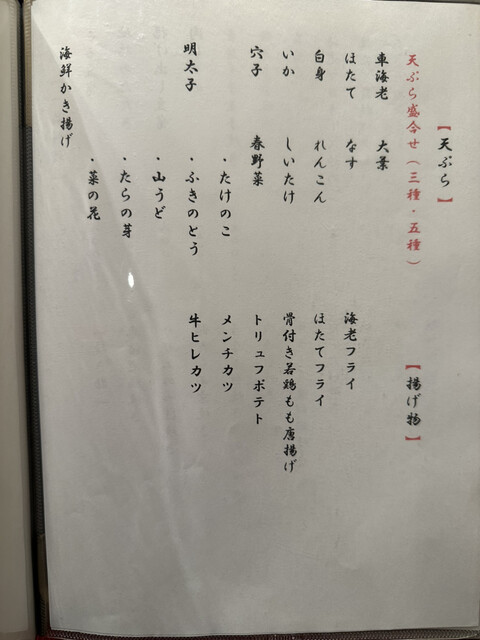 【天ぷら】
天ぷら盛合せ（三種・五種）
車海老
ほたて
白身
いか
穴子
明太子
海鮮かき揚げ
大葉
なす
れんこん
しいたけ
春野菜
・たけのこ
・ふきのとう
・山うど
・たらの芽
・菜の花
【揚げ物】
海老フライ
ほたてフライ
骨付き若鶏もも唐揚げ
トリュフポテト
メンチカツ
牛ヒレカツ